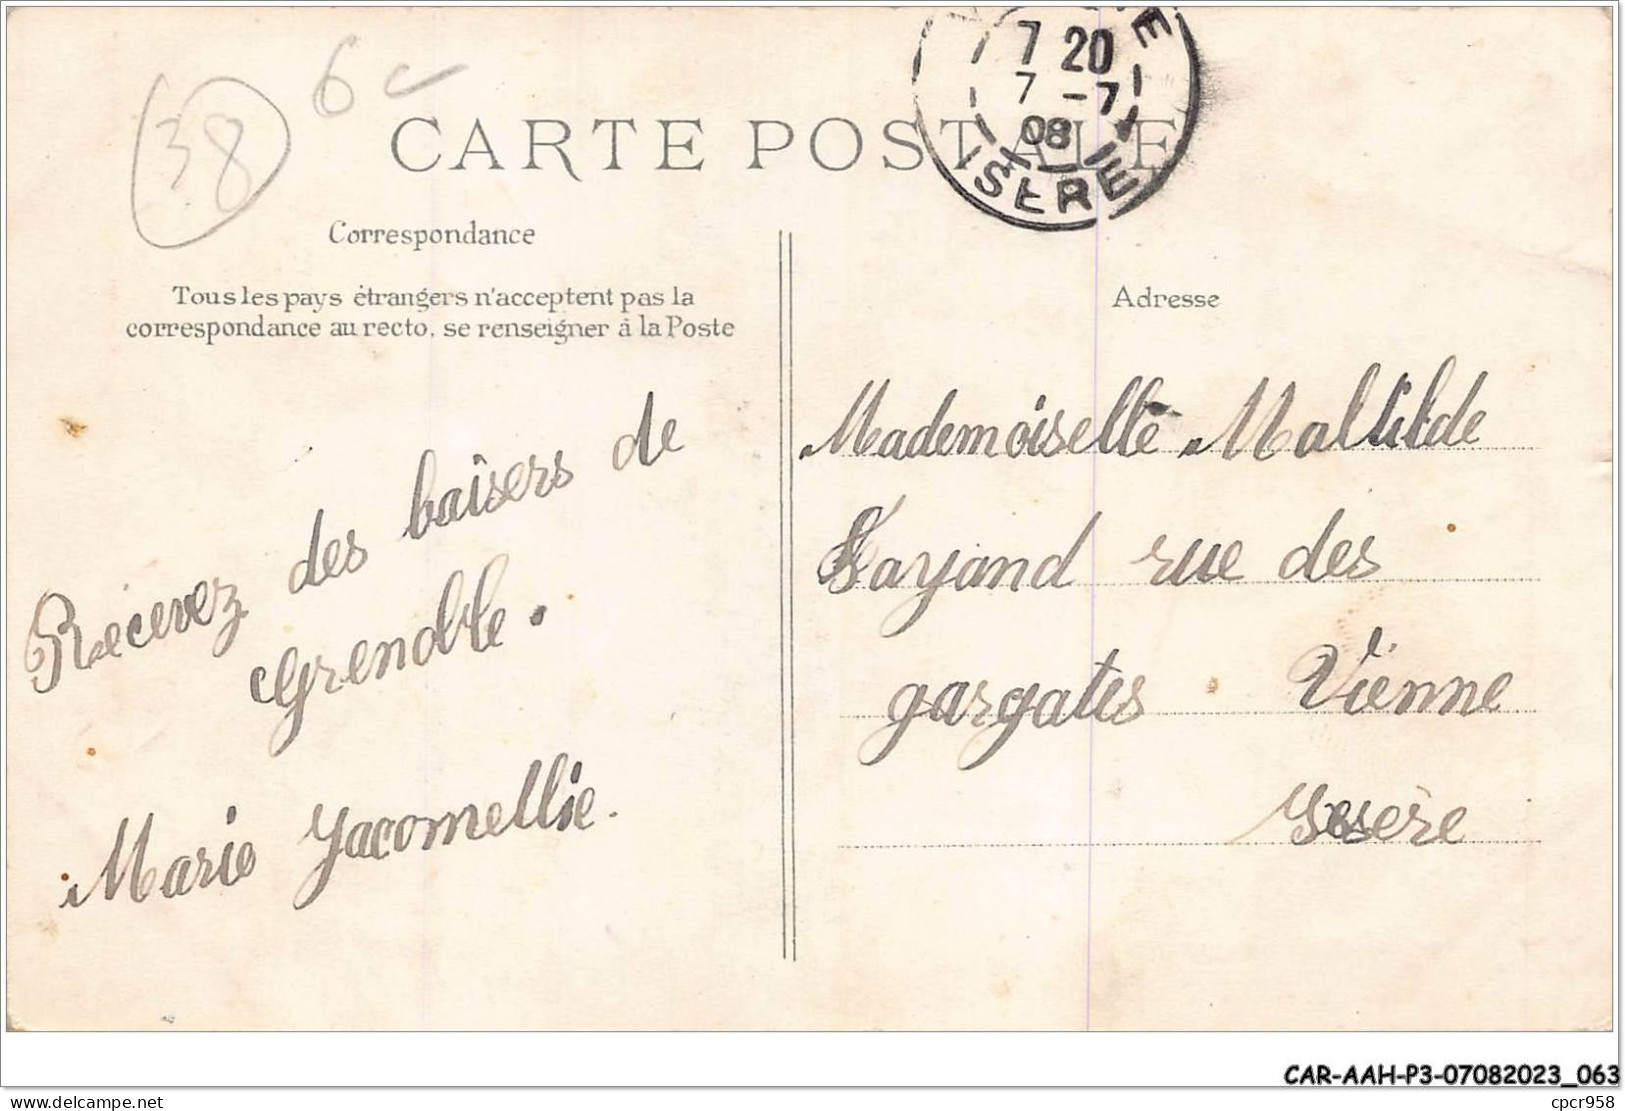 38
6
7 20
7 -7
08
ISERE
CARTE POSTALE
Correspondance
Tous les pays étrangers n'acceptent pas la
correspondance au recto, se renseigner à la Poste
Adresse
Recevez des baisers de
Grenoble.
Marie Jacomellie.
Mademoiselle Maltilde
Fayand rue des
gargates Vienne
Isesère
CAR-AAH-P3-07082023_063
delcampe.net
cpcr958